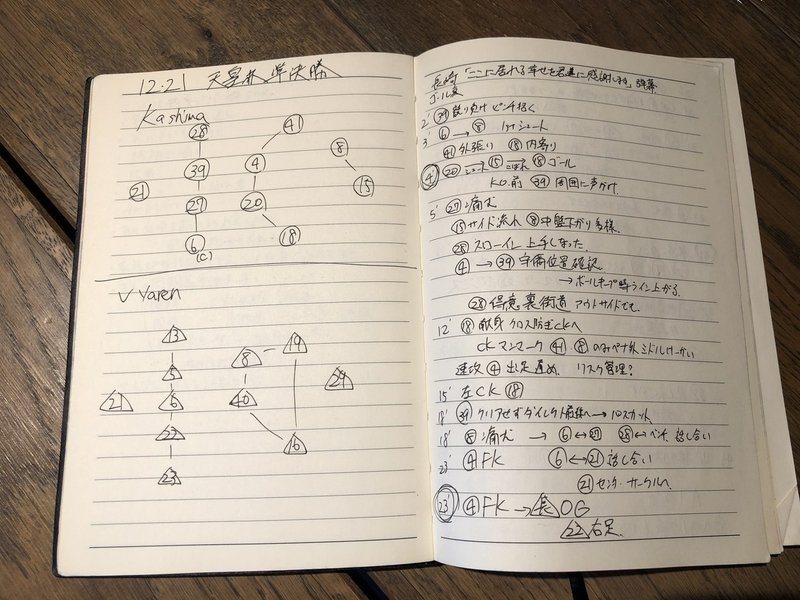 12.21 天皇杯 準決勝
Kashima
28
41
39
4
8
21
27
20
15
6
(C)
18
V Varen
13
19
5
8
21
6
40
29
22
16
23
長崎「ここに居れる幸せを君達に感謝します」弾幕
ゴール裏
2' 39 競り負け ピンチ招く
3' 6 → 8 1stシュート
41 外張り 18 内寄り
4' 20 シュート 15 こぼれ 18 ゴール
KO前 39 周囲に声かけ
5' 27 痛む
15 サイド流れ 8 中盤下がり多様
28 スローイン 上手くなった
4 → 39 守備位置確認
→ ボールキープ時ライン上がる
28 得意 裏街道 アウトサイドで
12' 18 献身 クロス防ぎCKへ
CK マンマーク 41・8 のみペナ外ミドルけーかい
速攻 4 出足 リスク管理?
15' 左CK 18
18' 39 クリアせずダイレクト前線へ → 10スカット
18' 8 痛む → 6 ↔ 27 28 ↔ ベンチ 話し合い
23' 4 FK 6 ↔ 21 話し合い
21 センターサークルへ
23' 4 FK → 長 OG
22 右足